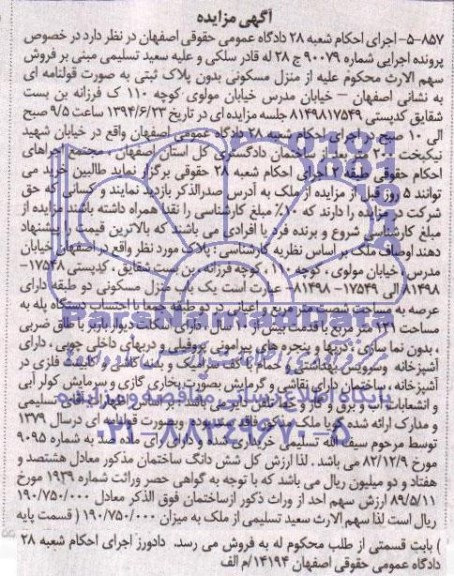 آگهی مزایده
۸۵۷-۵- اجرای احکام شعبه ۲۸ دادگاه عمومی حقوقی اصفهان در نظر دارد در خصوص
پرونده اجرایی شماره ۹۰۰۷۹ ج ۲۸ له قادر سلکی و علیه سعید تسلیمی مبنی بر فروش
سهم الارث محکوم علیه از منزل مسکونی بدون پلاک ثبتی به صورت قولنامه ای
به نشانی اصفهان – خیابان مدرس خیابان مولوی کوچه ۱۱۰ ک فرزانه بن بست
شقایق کدپستی ۸۱۴۹۸۱۷۵۴۹ جلسه مزایده ای در تاریخ ۱۳۹۴/۶/۲۳ ساعت ۹/۵ صبح
الی ۱۰ صبح در اجرای احکام شعبه ۲۸ دادگاه عمومی اصفهان واقع در خیابان شهید
نیکبخت ۲۰۰ متر بعد از ساختمان دادگستری کل استان اصفهان مجتمع اجراهای
احکام حقوقی طبقه ۲ اجرای احکام شعبه ۲۸ حقوقی برگزار نماید طالبین خرید می
توانند ۵ روز قبل از مزایده از ملک به آدرس صدرالذکر بازدید نمایند و کسانی که حق
شرکت در مزایده را دارند که ۱۰٪ مبلغ کارشناسی را نقدا همراه داشته باشند مزایده از
مبلغ کارشناسی شروع و برنده فرد یا افرادی می باشند که بالاترین قیمت را پیشنهاد
دهند اوصاف ملک بر اساس نظریه کارشناسی: پلاک مورد نظر واقع در اصفهان خیابان
مدرس، خیابان مولوی، کوچه ۱۱۰، کوچه فرزانه، بن بست شقایق، کدپستی ۱۷۵۴۸-
۸۱۴۹۸ الی ۱۷۵۴۹-۸۱۴۹۸ عبارت است یک باب منزل مسکونی دو طبقه دارای
عرصه به مساحت شصت متر مربع و اعیانی در دو طبقه جمعا با احتساب دستگاه پله به
مساحت ۱۳۱ متر مربع با قدمت بیش از سال، دارای اسکلت دیوار باربر با طاق ضربی
، بدون نما سازی، دربها و پنجره های پیرامونی پروفیلی و دربهای داخلی چوبی، دارای
آشپزخانه وسرویس بهداشتی و حمام با کف سرامیک و بدنه کاشی و کابینت فلزی در
آشپزخانه، ساختمان دارای نقاشی و گرمایش بصورت بخاری گازی و سرمایش کولر آبی
و انشعابات آب و برق و گاز و فاضلاب دایر می باشد. بر اساس اظهار آقای تسلیمی
و مدارک ارائه شده گویا ملک مذکور فاقد سند رسمی و بصورت قولنامه ای درسال ۱۳۷۹
توسط مرحوم سیف اله تسلیمی خریداری شده و دارای به شماره ۹۰۹۵
مورخ ۸۲/۱۲/۹ می باشد. لذا ارزش کل شش دانگ ساختمان مذکور معادل هشتصد و
هفتاد و دو میلیون ریال می باشد که با توجه به گواهی حصر وراثت شماره ۱۹۳۹ مورخ
۸۹/۵/۱۱ ارزش سهم احد از وراث ذکور ازساختمان فوق الذکر معادل ۱۹۰/۷۵۰/۰۰۰
ریال است لذا سهم الارث سعید تسلیمی از ملک به میزان ۱۹۰/۷۵۰/۰۰۰ ( قسمت پایه
) بابت قسمتی از طلب محکوم له به فروش می رسد. دادورز اجرای احکام شعبه ۲۸
دادگاه عمومی حقوقی اصفهان ۱۴۱۹۴/م الف
ParsNamadData
پایگاه اطلاع رسانی مناقصه و مزایده
۰۲۱-۸۸۳۴۹۶۷۰-۵